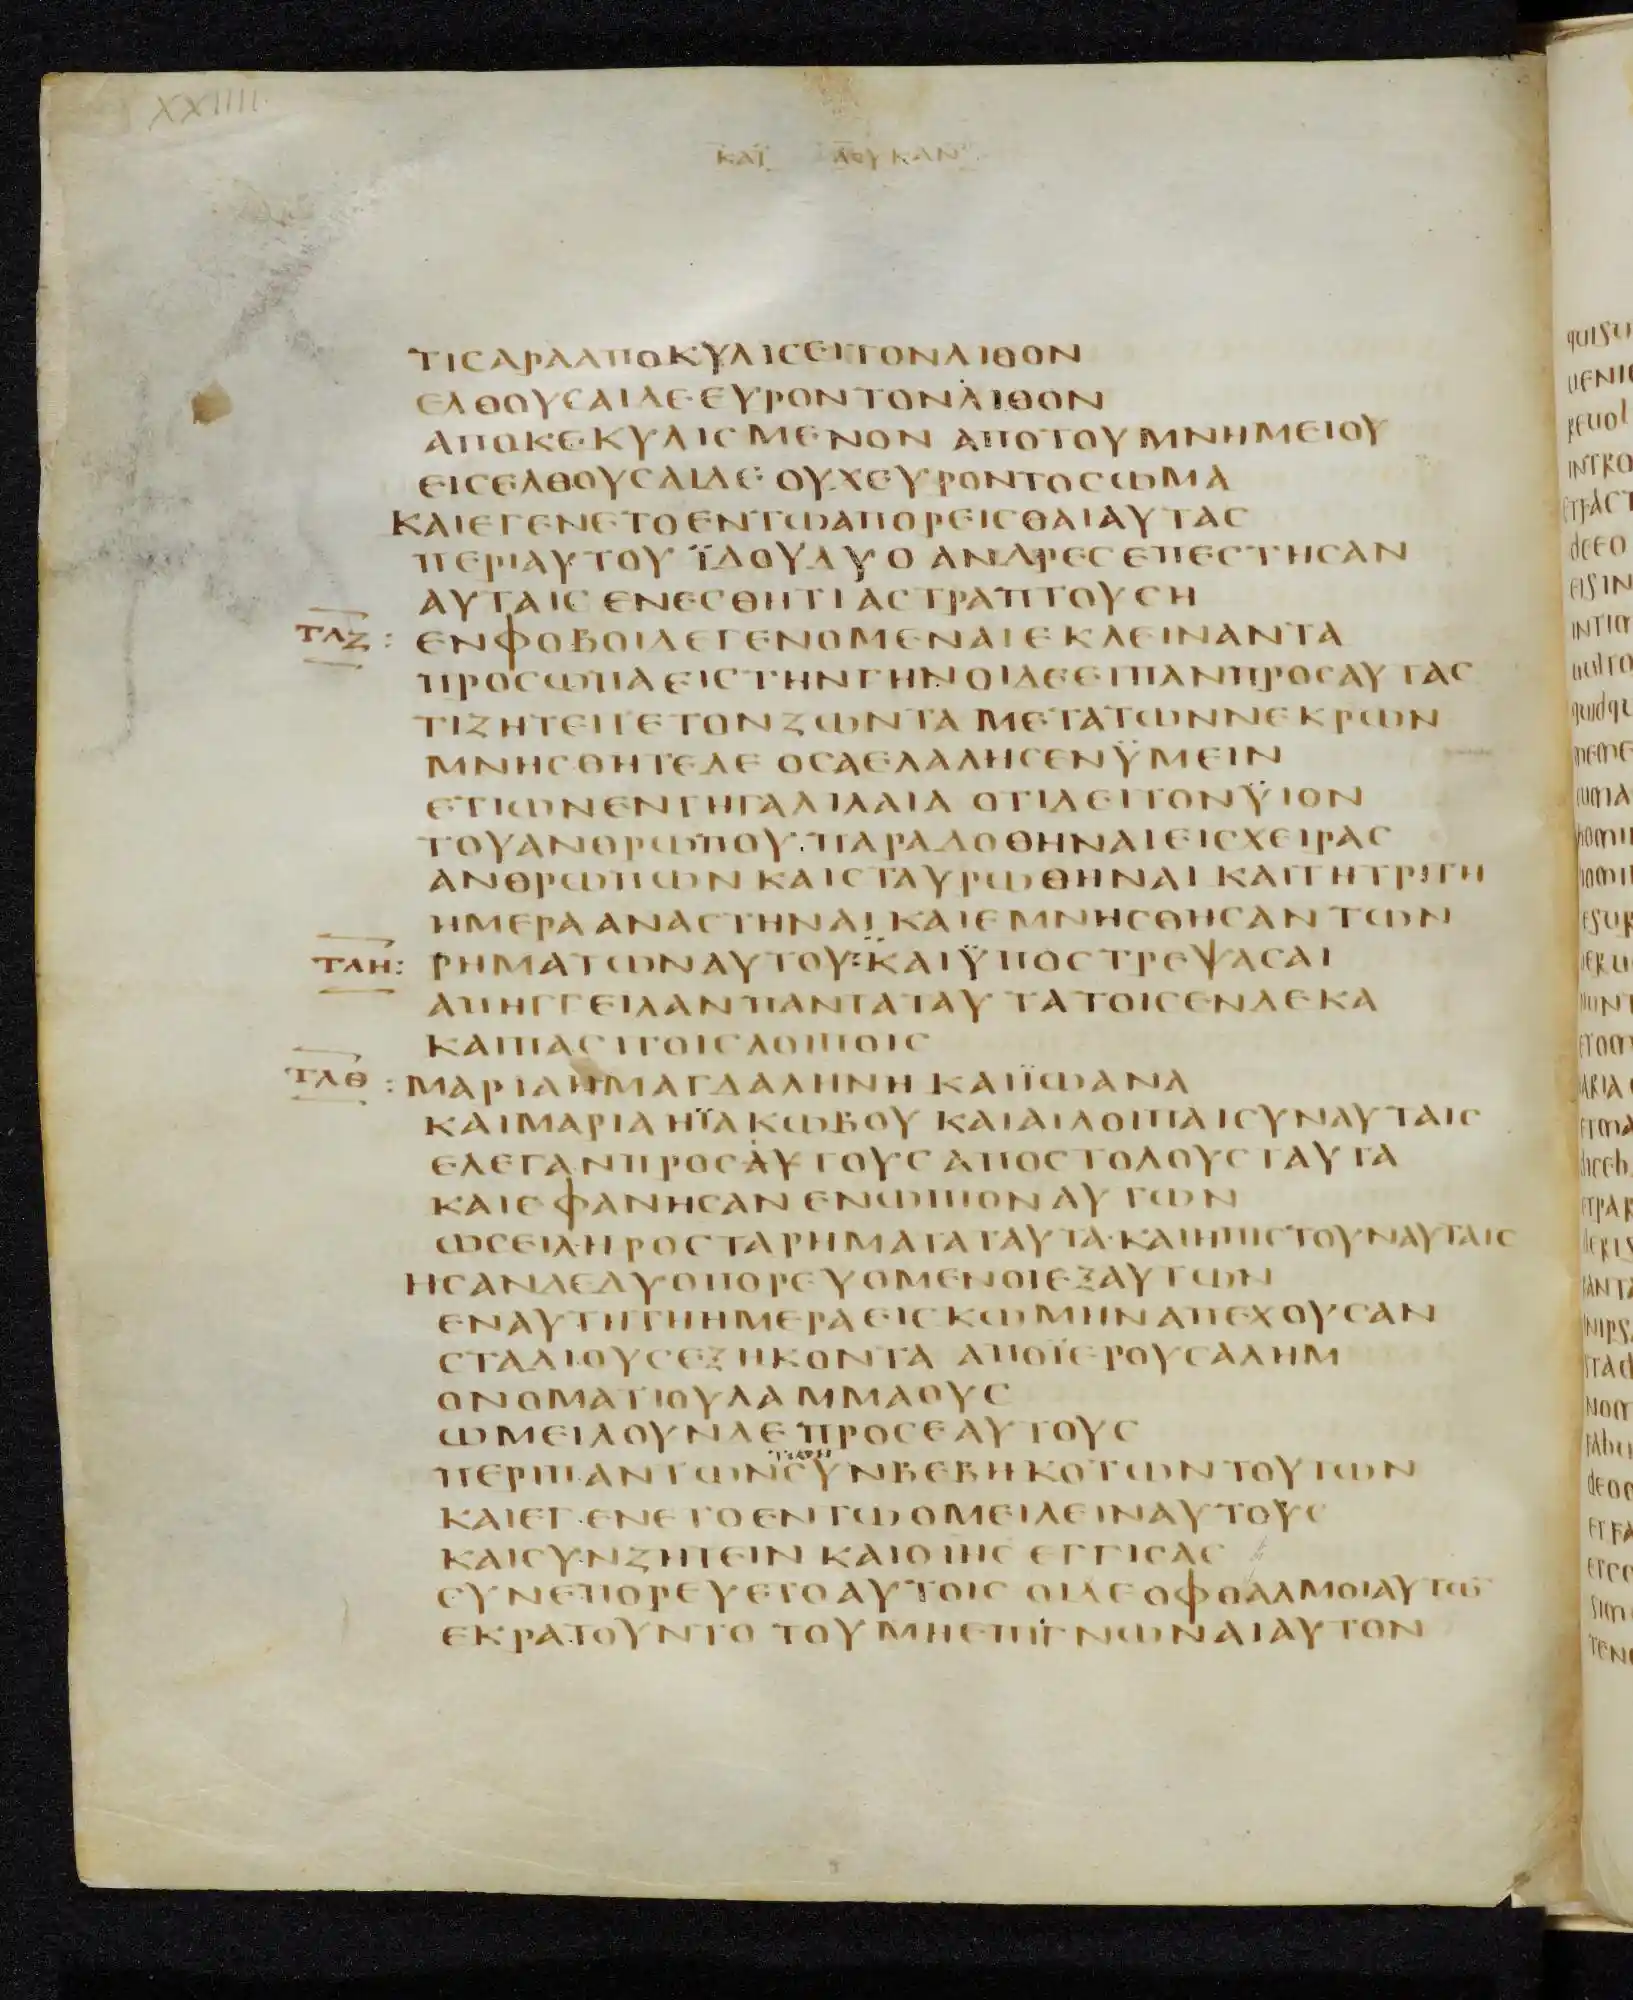 XXIIII
ΚΑΤ ΛΟΥΚΑΝ
ΤΙCΑΡΑΑΠΟΚΥΛΙCΕΙΤΟΝΛΙΘΟΝ
ΕΛΘΟΥCΑΙΔΕΕΥΡΟΝΤΟΝΛΙΘΟΝ
ΑΠΟΚΕΚΥΛΙCΜΕΝΟΝ ΑΠΟΤΟΥΜΝΗΜΕΙΟΥ
ΕΙCΕΛΘΟΥCΑΙΔΕ ΟΥΧΕΥΡΟΝΤΟCΩΜΑ
ΚΑΙΕΓΕΝΕΤΟΕΝΤΩΑΠΟΡΕΙCΘΑΙΑΥΤΑC
ΠΕΡΙΑΥΤΟΥ ΪΔΟΥΔΥΟ ΑΝΔΡΕCΕΠΕCΤΗCΑΝ
ΑΥΤΑΙC ΕΝΕCΘΗΤΙΑCΤΡΑΠΤΟΥCΗ
ΤΛΖ : ΕΝΦΟΒΟΙΔΕΓΕΝΟΜΕΝΑΙΕΚΛΕΙΝΑΝΤΑ
ΠΡΟCΩΠΑΕΙCΤΗΝΓΗΝΟΙΔΕΕΙΠΑΝΠΡΟCΑΥΤΑC
ΤΙΖΗΤΕΙΤΕΤΟΝΖΩΝΤΑ ΜΕΤΑΤΩΝΝΕΚΡΩΝ
ΜΝΗCΘΗΤΕΔΕ ΟCΑΕΛΑΛΗCΕΝΫΜΕΙΝ
ΕΤΙΩΝΕΝΤΗΓΑΛΙΛΑΙΑ ΟΤΙΔΕΙΤΟΝΫΙΟΝ
ΤΟΥΑΝΘΡΩΠΟΥ ΠΑΡΑΔΟΘΗΝΑΙΕΙCΧΕΙΡΑC
ΑΝΘΡΩΠΩΝ ΚΑΙCΤΑΥΡΩΘΗΝΑΙ ΚΑΙΤΗΤΡΙΤΗ
ΗΜΕΡΑΑΝΑCΤΗΝΑΙ ΚΑΙΕΜΝΗCΘΗCΑΝΤΩΝ
ΤΛΗ: ΡΗΜΑΤΩΝΑΥΤΟΥ:ΚΑΙΫΠΟCΤΡΕΨΑCΑΙ
ΑΠΗΓΓΕΙΛΑΝΠΑΝΤΑΤΑΥΤΑΤΟΙCΕΝΔΕΚΑ
ΚΑΙΠΑCΙΤΟΙCΛΟΙΠΟΙC
ΤΛΘ : ΜΑΡΙΑΗΜΑΓΔΑΛΗΝΗ ΚΑΙΪΩΑΝΑ
ΚΑΙΜΑΡΙΑΗΪΑΚΩΒΟΥ ΚΑΙΑΙΛΟΙΠΑΙCΥΝΑΥΤΑΙC
ΕΛΕΓΑΝΠΡΟCΑΥΤΟΥCΑΠΟCΤΟΛΟΥCΤΑΥΤΑ
ΚΑΙΕΦΑΝΗCΑΝ ΕΝΩΠΙΟΝΑΥΤΩΝ
ΩCΕΙΛΗΡΟCΤΑΡΗΜΑΤΑΤΑΥΤΑ·ΚΑΙΗΠΙCΤΟΥΝΑΥΤΑΙC
ΗCΑΝΔΕΔΥΟΠΟΡΕΥΟΜΕΝΟΙΕΞΑΥΤΩΝ
ΕΝΑΥΤΗΤΗΗΜΕΡΑΕΙCΚΩΜΗΝΑΠΕΧΟΥCΑΝ
CΤΑΔΙΟΥCΕΞΗΚΟΝΤΑ ΑΠΟΪΕΡΟΥCΑΛΗΜ
ΟΝΟΜΑΤΙΟΥΛΑΜΜΑΟΥC
ΩΜΕΙΛΟΥΝΔΕ ΠΡΟCΕΑΥΤΟΥC
ΠΕΡΙΠΑΝΤΩΝCΥΝΒΕΒΗΚΟΤΩΝΤΟΥΤΩΝ
ΚΑΙΕΓΕΝΕΤΟΕΝΤΩΟΜΕΙΛΕΙΝΑΥΤΟΥC
ΚΑΙCΥΝΖΗΤΕΙΝ ΚΑΙΟΙΗC ΕΓΓΙCΑC
CΥΝΕΠΟΡΕΥΕΤΟΑΥΤΟΙC ΟΙΔΕΟΦΘΑΛΜΟΙΑΥΤΩ̅
ΕΚΡΑΤΟΥΝΤΟ ΤΟΥΜΗΕΠΙΓΝΩΝΑΙΑΥΤΟΝ